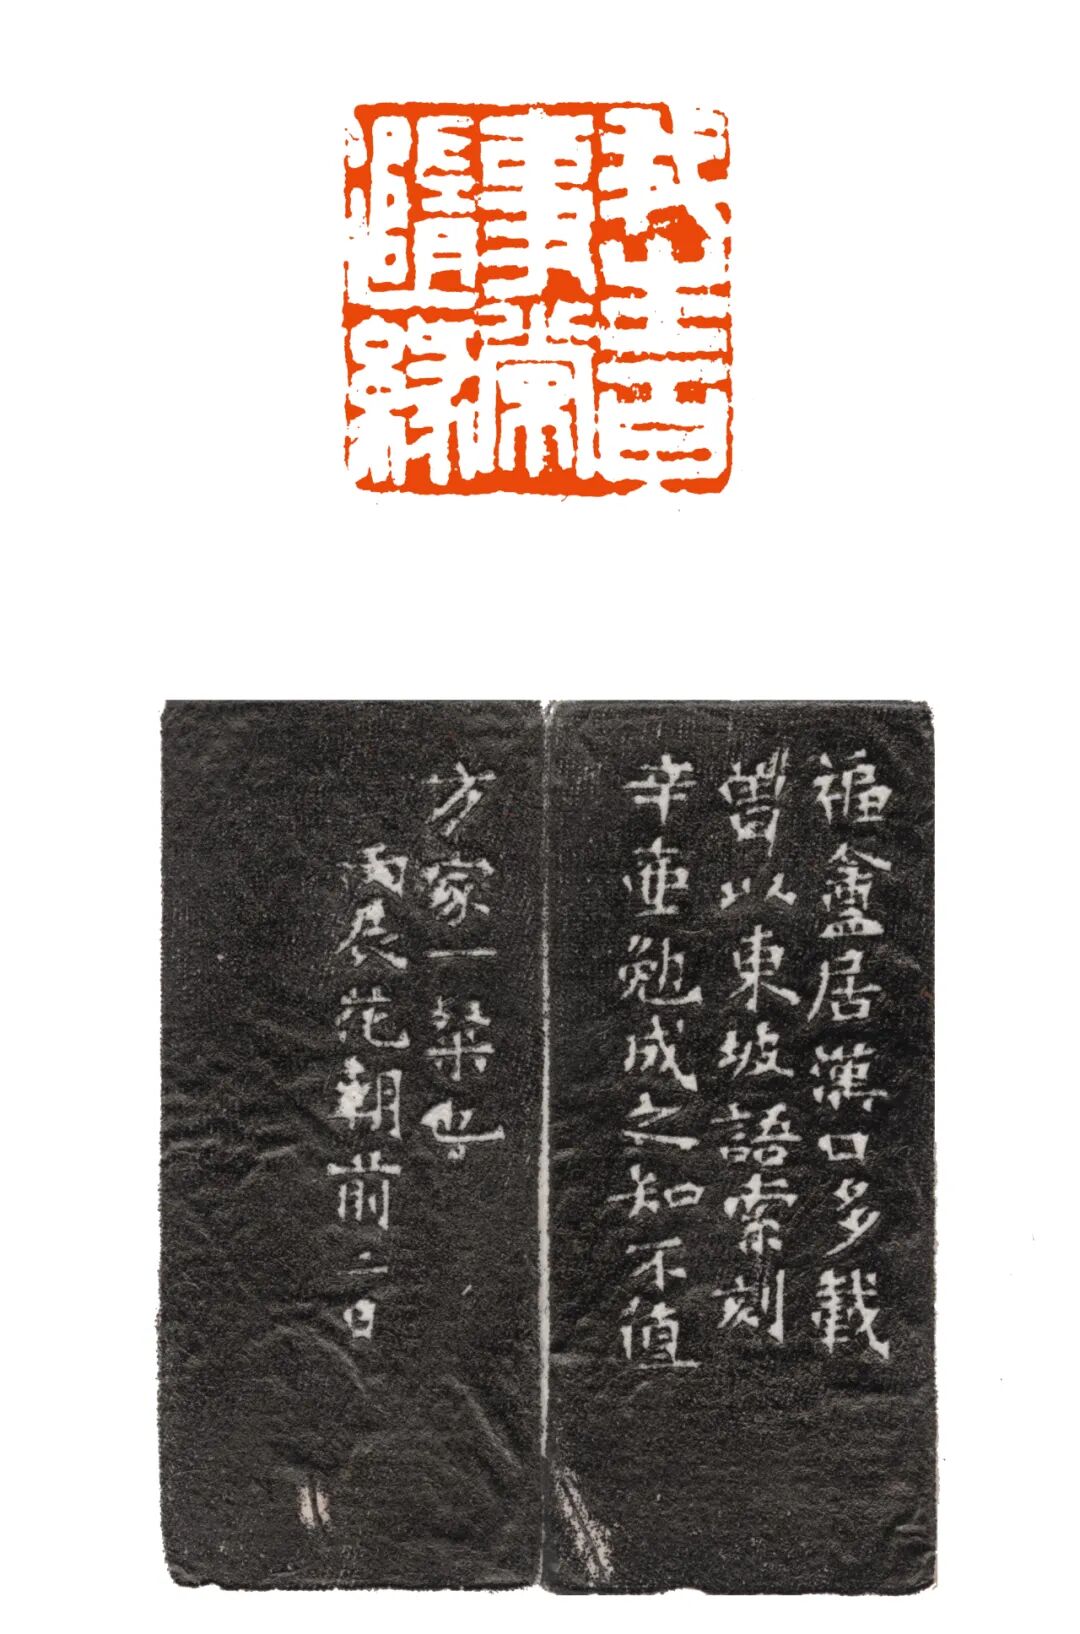 我生百
事常
隨緣
福盦居漢口多載
曾以東坡語索刻
辛勉成之知不值
方家一粲也
丙辰花朝前二日